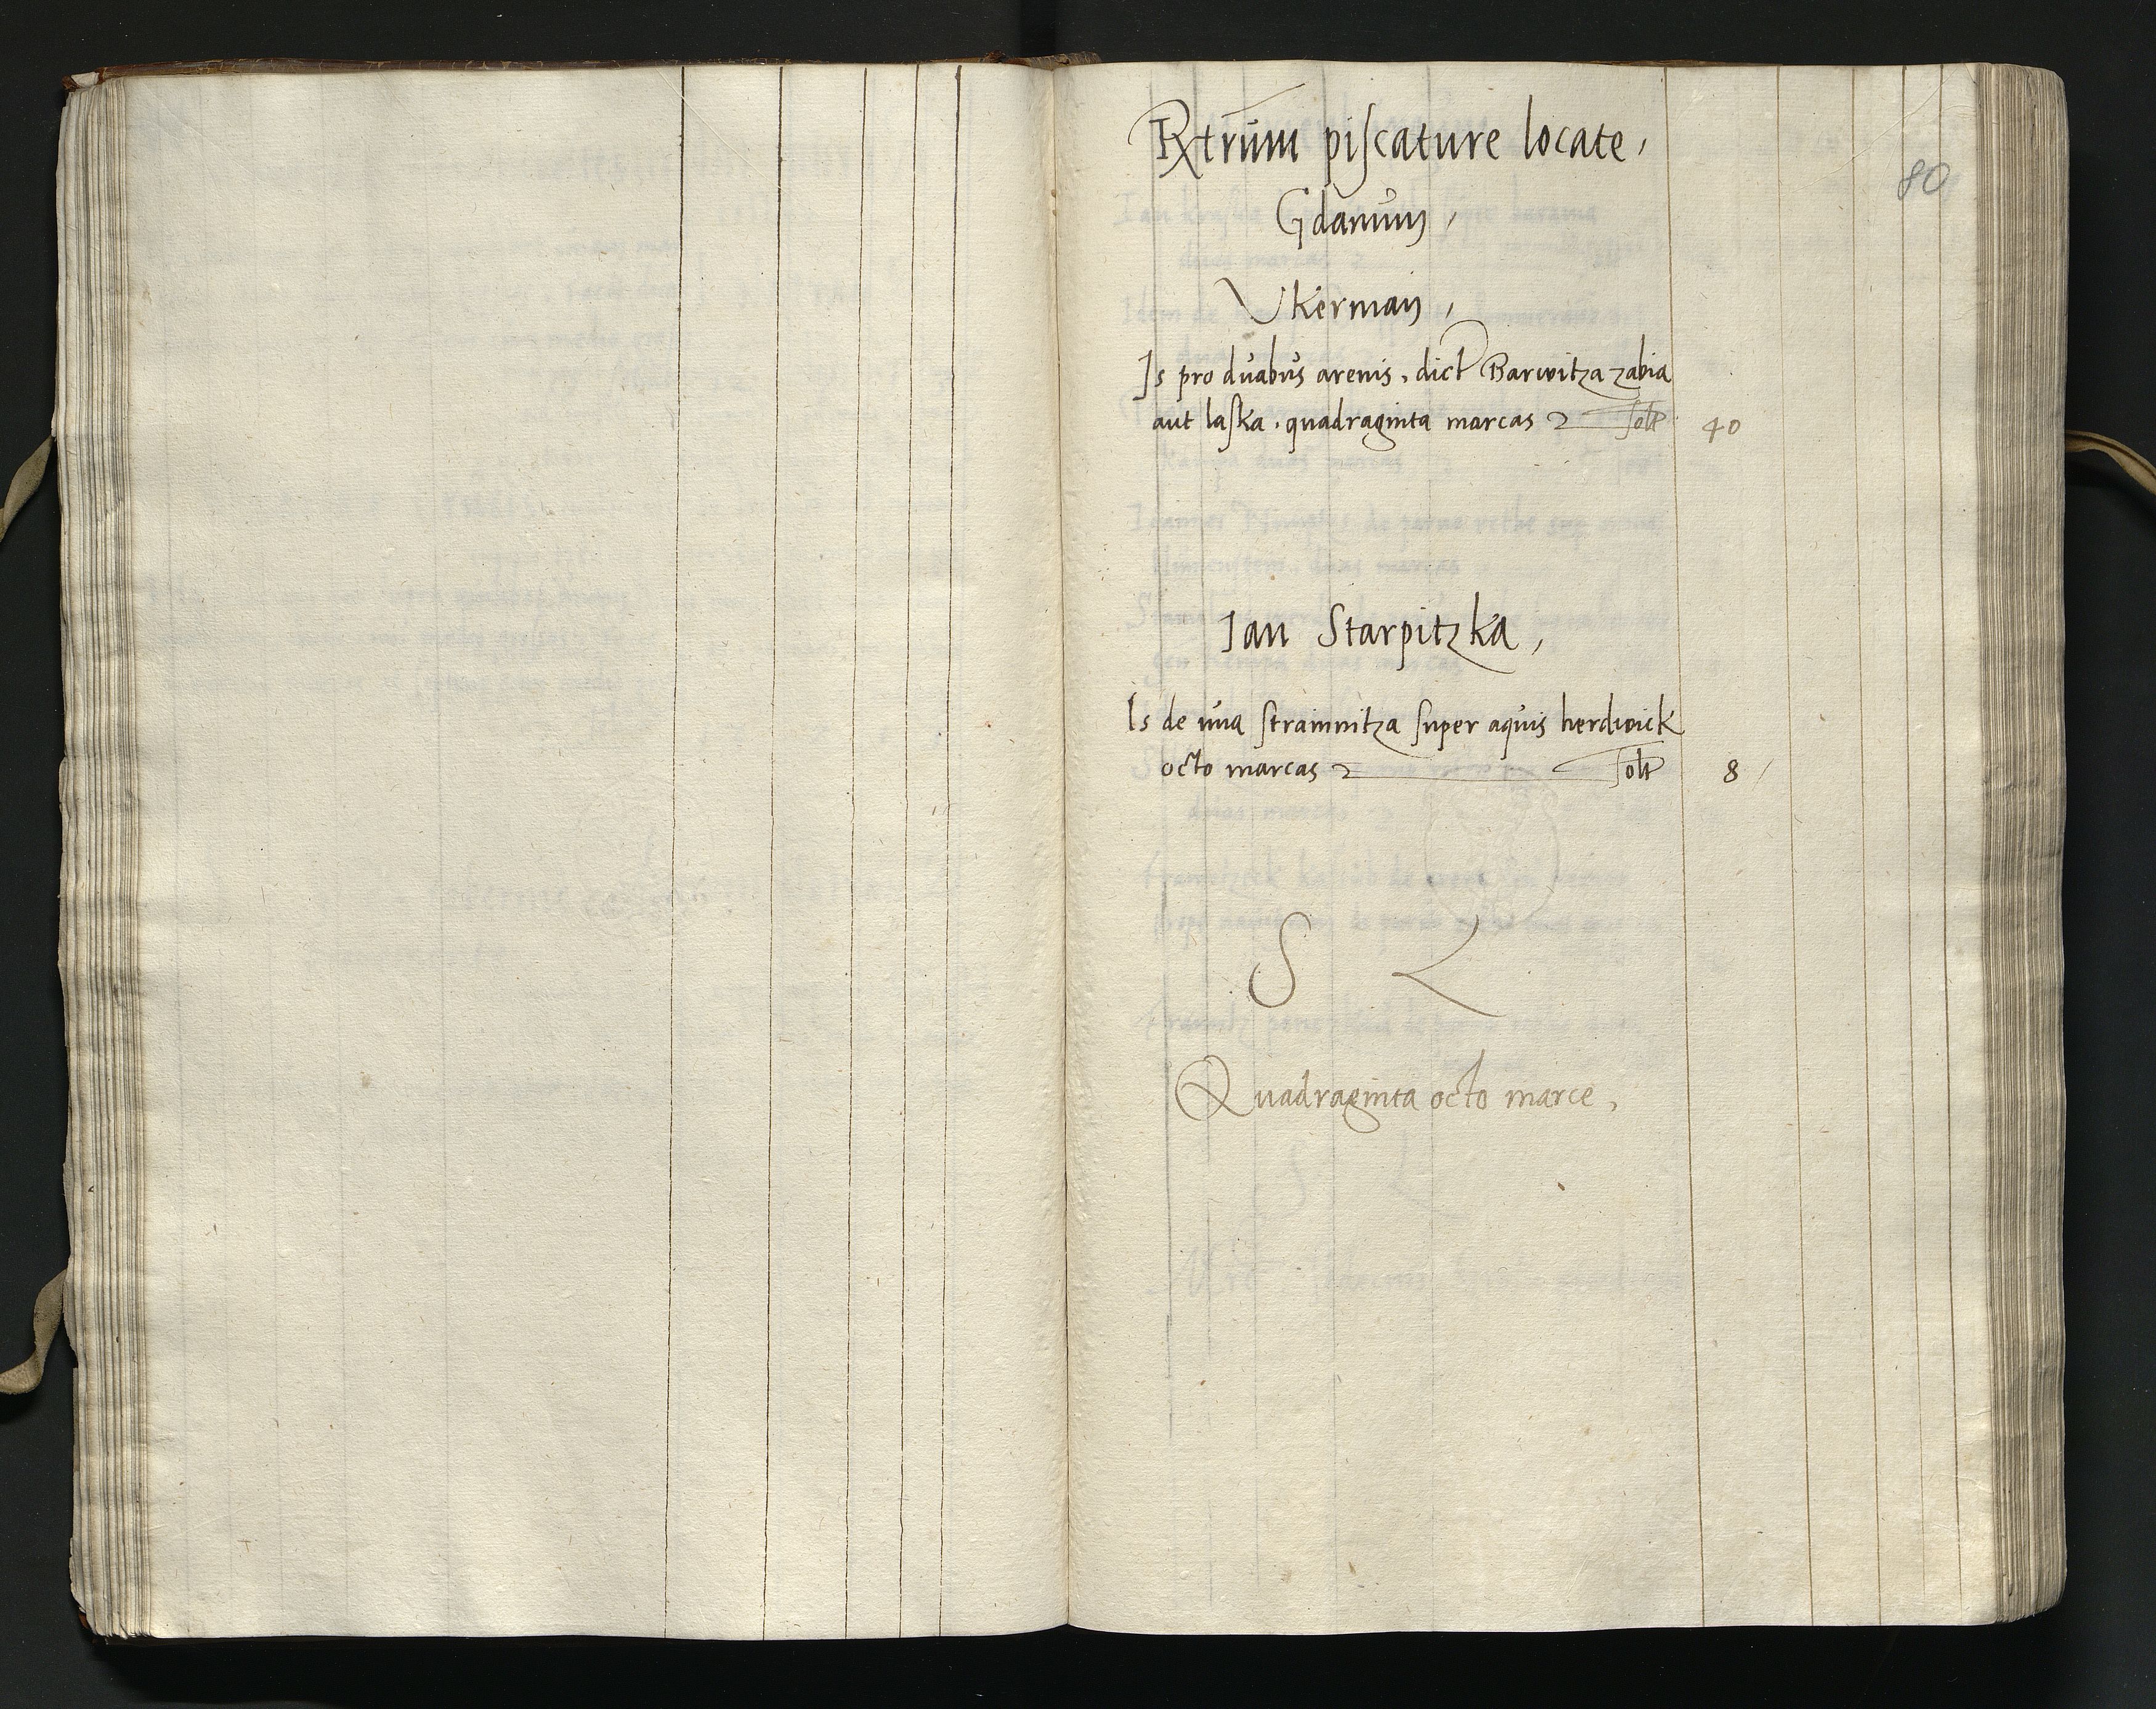 Rxtrum piscature locate,
80
Gdanum,
Vkerman,
Is pro duabus arenis, dict Barwitza zabia
aut laska. quadraginta marcas solt 40
Ian Starpitzka,
Is de una stramnitza super aquis herdwick
octo marcas solt 8
S
Quadraginta octo marce,